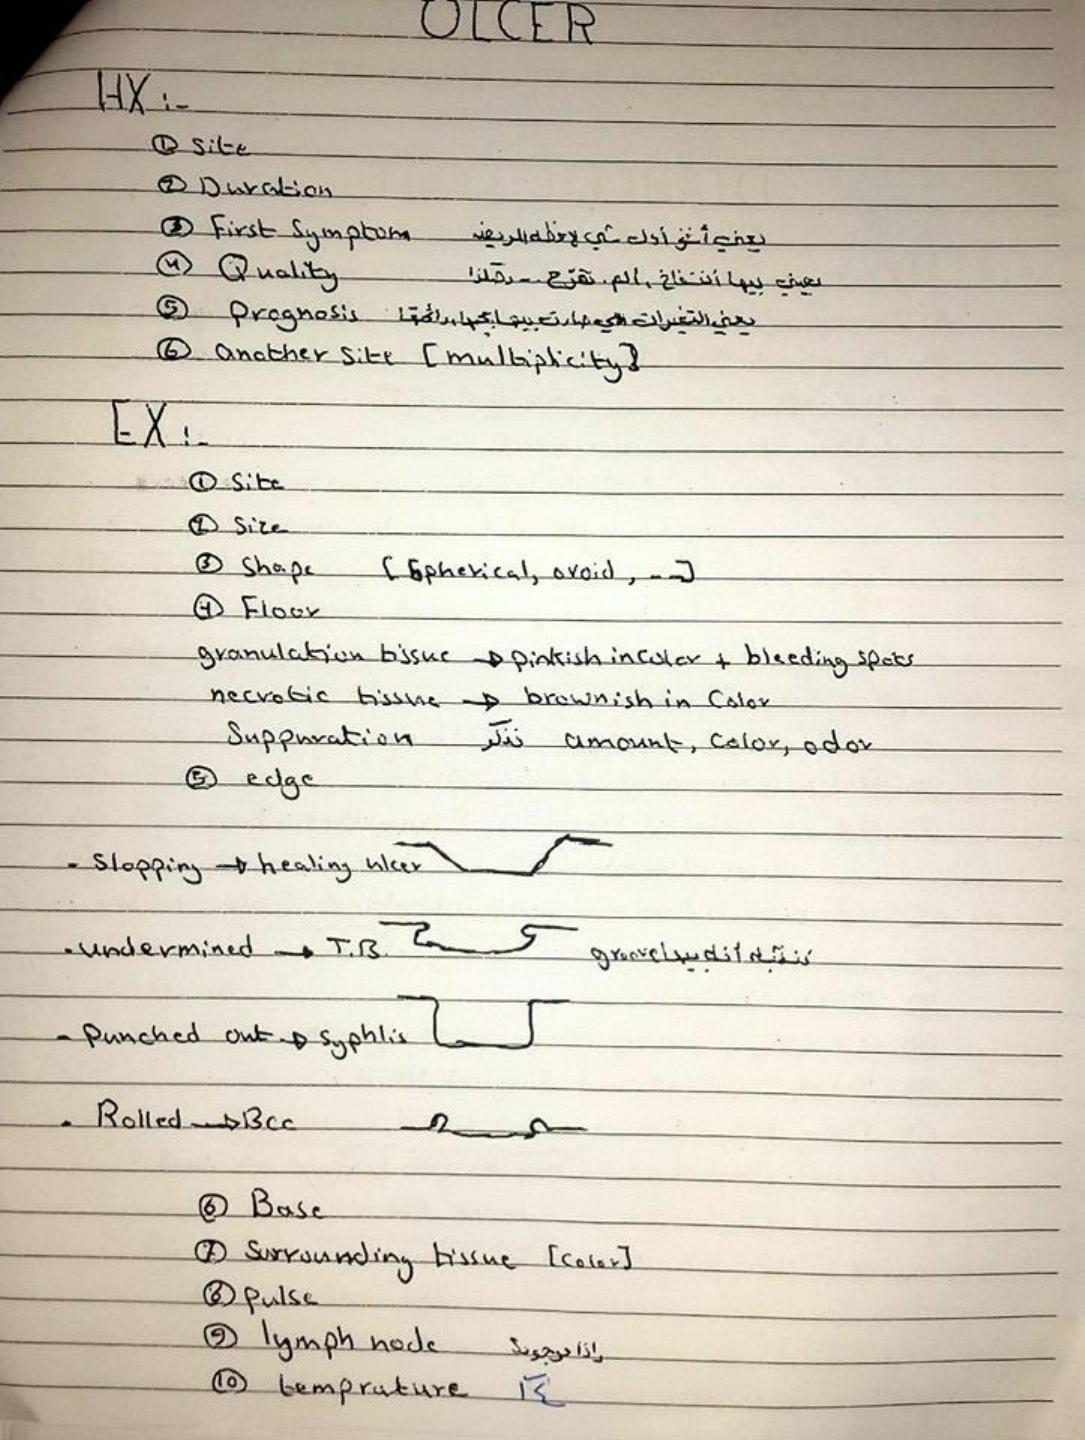 ULCER
HX :-
① Site
② Duration
③ First Symptom يعني أول شي لاحظه المريض
④ Quality يعني بيها أنتفاخ, ألم, تقرح
⑤ Prognosis يعني التغيرات صارت بيها
⑥ another Site [multiplicity]
EX :-
① Site
② Size
③ Shape [Spherical, ovoid, ---]
④ Floor
granulation tissue → pinkish in color + bleeding spots
necrotic tissue → brownish in Color
Suppuration نذكر amount, color, odor
⑤ edge
- Slopping → healing ulcer
- undermined → T.B. ننتبه انه بيها groove
- Punched out → Syphlis
- Rolled → Bcc
⑥ Base
⑦ Surrounding tissue [Color]
⑧ pulse
⑨ lymph node إذا موجودة
⑩ temprature